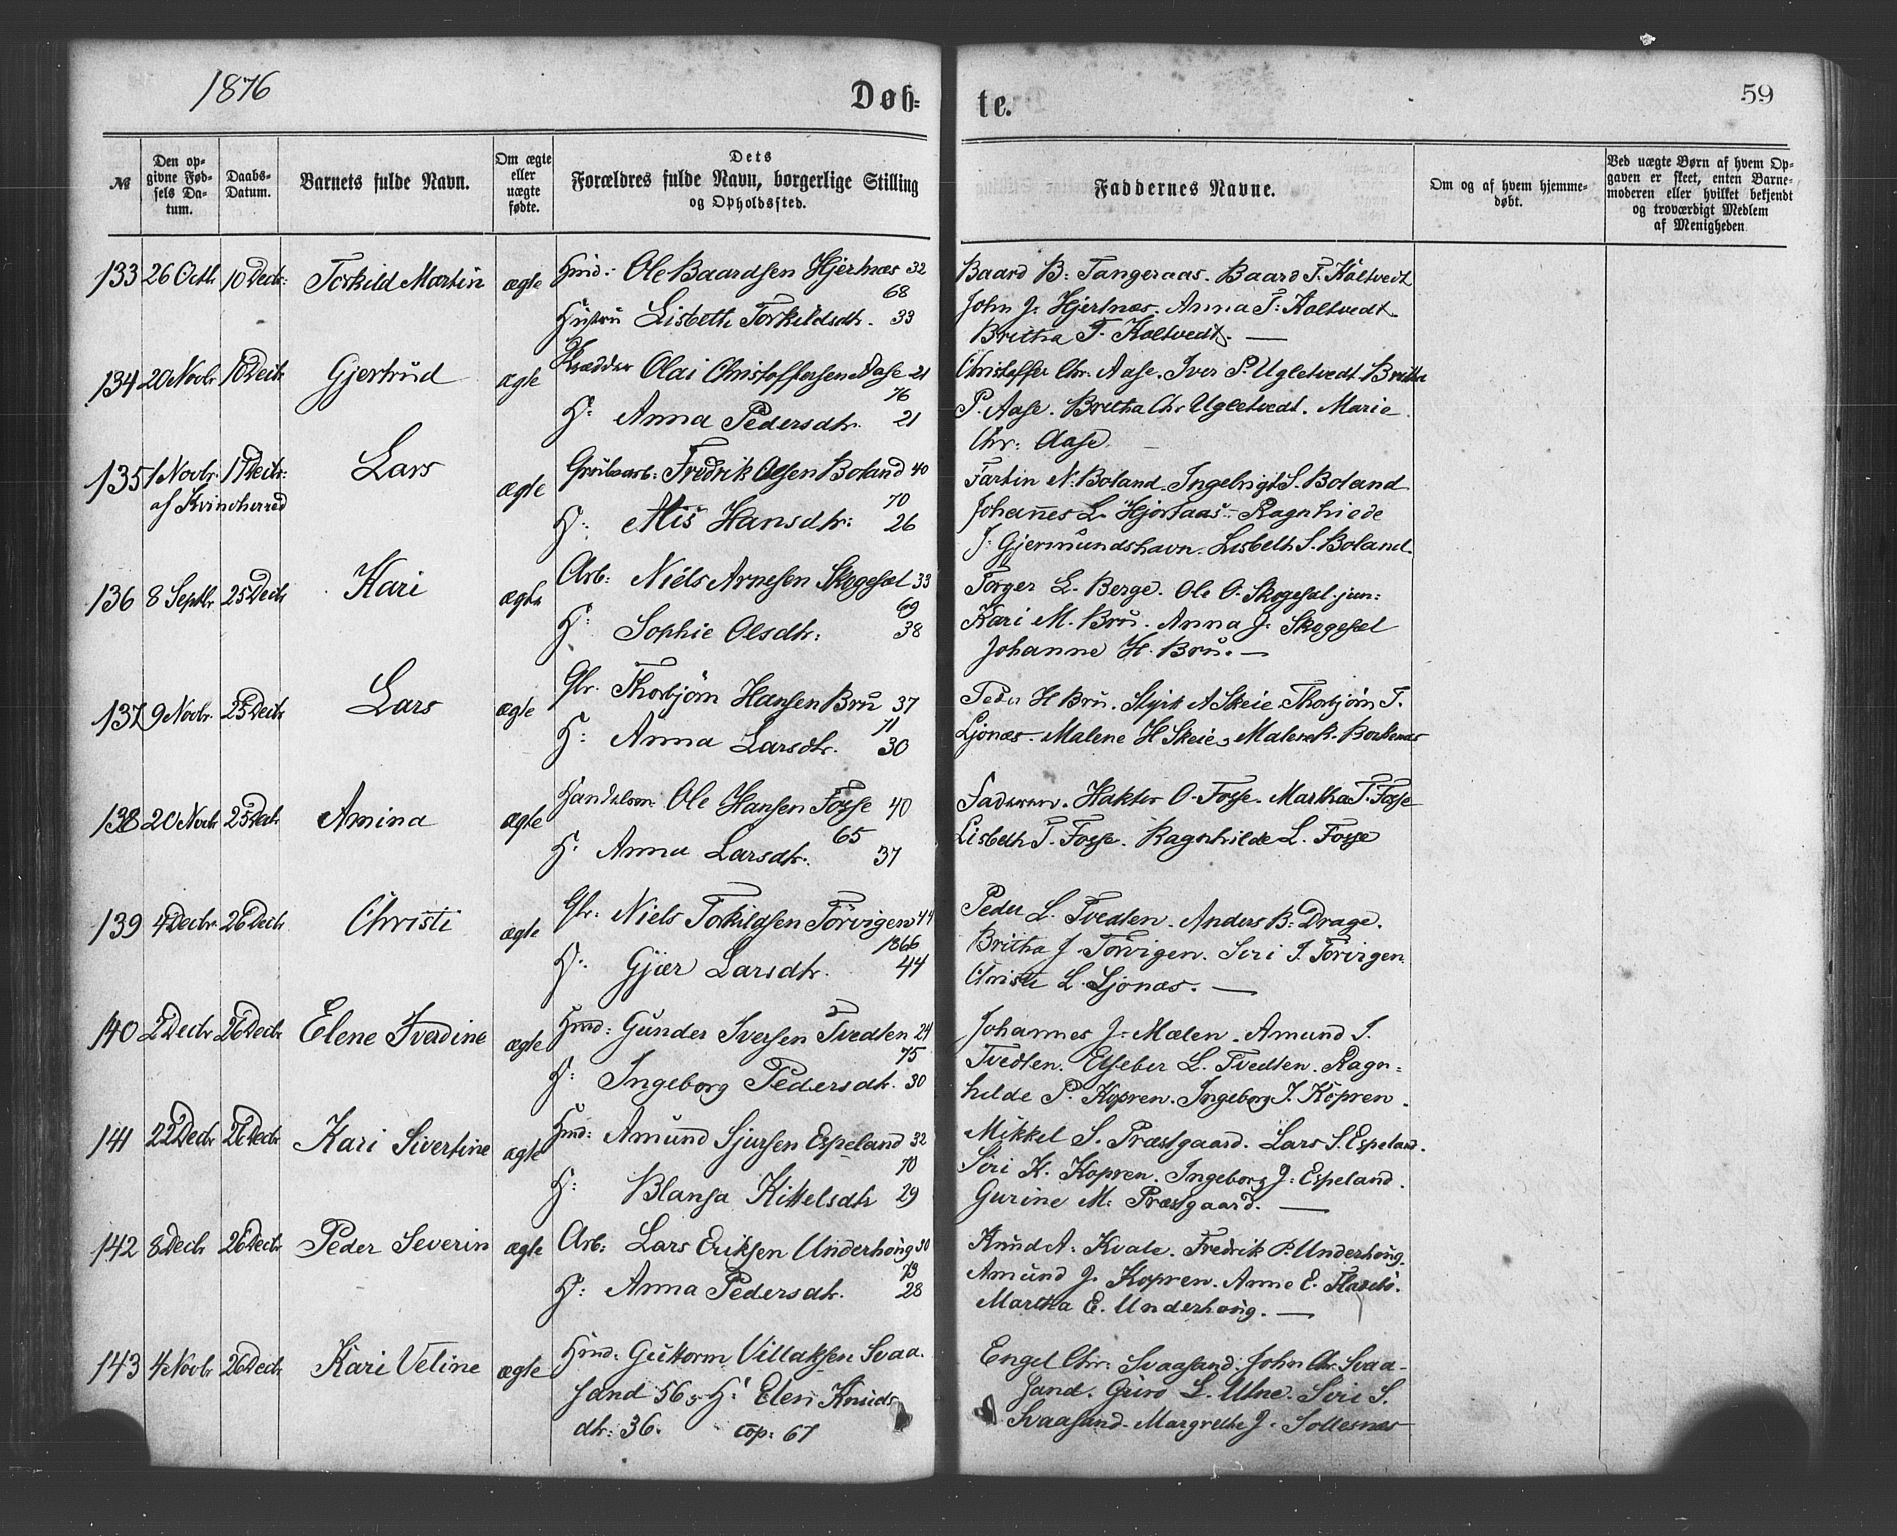 1876
Døb=
te.
59
№
Den op-
givne Fød-
sels Da-
tum.
Daabs-
Datum.
Barnets fulde Navn.
Om ægte
eller
uægte
fødte.
Dets
Forældres fulde Navn, borgerlige Stilling
og Opholdssted.
Faddernes Navne.
Om og af hvem hjemme-
døbt.
Ved uægte Børn af hvem Op-
gaven er skeet, enten Barne-
moderen eller hvilket bekjendt
og troværdigt Medlem
af Menigheden.
133 26 Octbr 10 Decbr: Torkild Martin ægte Hmd: Ole Baardsen Hjertnæs 32
68
Hustru Lisbeth Torkildsdtr. 33
Baard B: Tangeraas. Baard T. Koltvedt
John J. Hjertnæs. Anna T: Koltvedt
Britha T. Koltvedt. —
134 20 Novbr 10 Decbr Gjertrud ægte Olai Christoffersen Aase 21
76
H: Anna Pedersdtr. 21
Christoffer Chr. Aase. Iver P. Ugletvedt. Britha
P. Aase. Britha Chr Ugletvedt. Marie
Chr: Aase.
135 1 Novbr. 17 Decbr: Lars ægte Fredrik Olsen Boland 40
af Kvinherred
70
H: Alis Hansdtr: 26
N. Boland. Ingebrigt S. Boland
Johannes L. Hjortaas. Ragnhilde
J. Gjermundshavn. Lisbeth S. Boland.
136 8 Septbr 25 Decbr Kari ægte Arb: Niels Arnesen Skogesæl 33
69
H: Sophie Olsdtr: 38
Torger L. Berge. Ole O. Skogesæl jun:
Kari M. Bru. Anna J. Skogesæl
Johanne H. Bru. —
137 9 Novbr. 25 Decbr Lars ægte Gbr. Thorbjørn Hansen Bru 37
71
H: Anna Larsdtr. 30
Peder H Bru. A Skeie. Thorbjørn T.
Ljonæs. Malene H Skeie,
138 20 Novbr 25 Decbr Amina ægte Handelsm: Ole Hansen Fosse 40
65
H: Anna Larsdtr. 37
Faderen. O. Fosse. Martha T. Fosse
Lisbeth T. Fosse. Ragnhilde L. Fosse
139 4 Decbr 26 Decbr Christi ægte Gbr: Niels Torkildsen Torvigen 44
1866
H: Gjær Larsdtr. 44
Peder L. Tvedten. Anders B: Drage.
Britha J. Torvigen. Siri I. Torvigen.
Christi L. Ljonæs. —
140 2 Decbr 26 Decbr Elene Iverdine ægte Hmd: Gunder Iversen Tvedten 24
75
H: Ingeborg Pedersdtr. 30
Johannes J. Mælen. Amund I.
Tvedten. Elseber L. Tvedten. Ragn=
hilde P. Kopren. Ingeborg J. Kopren.
141 22 Decbr 26 Decbr Kari Sivertine ægte Hmd: Amund Sjursen Espeland 32
70
H: Blansa Kittelsdtr 29
Mikkel S. Præstgaard. Lars S. Espeland.
Siri K. Kopren. Ingeborg J: Espeland.
Gurine M. Præstgaard. —
142 8 Decbr 26 Decbr Peder Severin ægte Arb: Lars Eriksen Underhoug 30
73
H: Anna Pedersdtr. 28
Knud A: Kvale. Fredrik P. Underhoug.
Amund J. Kopren. Anne E.
Martha E. Underhoug. —
143 4 Novbr 26 Decbr. Kari Veline ægte Hmd: Guttorm Villaksen Svaa-
sand 56, H: Elen Knuds
dtr: 36. cop: 67
Engel Chr: Svaasand. John Chr. Svaa-
sand. Guro L. Ulne. Siri S.
Svaasand. Margrethe J. Sollesnæs